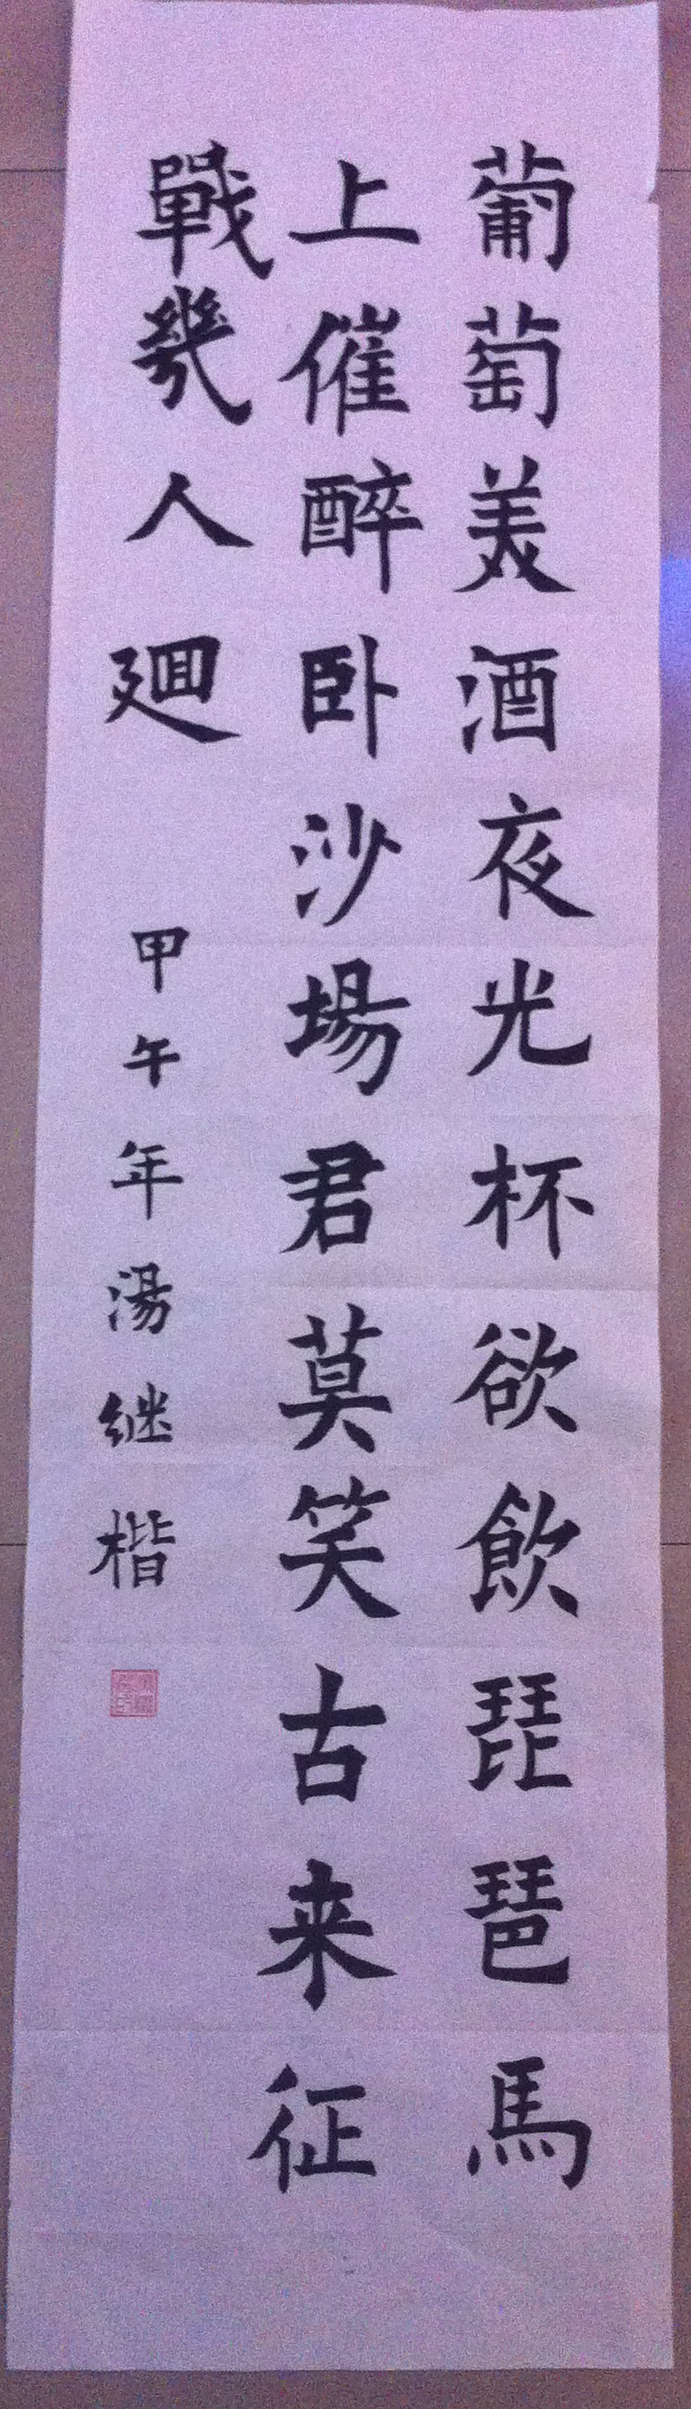 葡萄美酒夜光杯欲飲琵琶馬
上催醉卧沙場君莫笑古来征
戰幾人廻
甲午年湯继楷